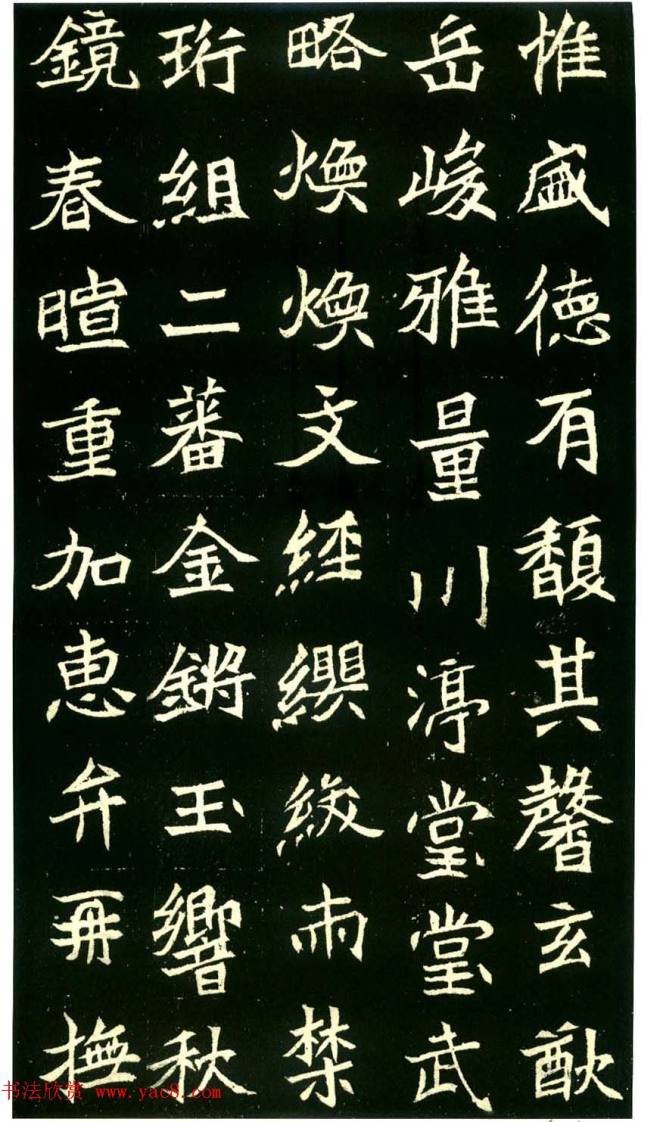 惟盛德有馥其馨玄猷
岳峻雅量川渟堂堂武
略煥煥文經纓紱兩禁
珩組二蕃金鏘玉響秋
鏡春暄重加惠弁再撫
书法欣赏 www.yac8.com